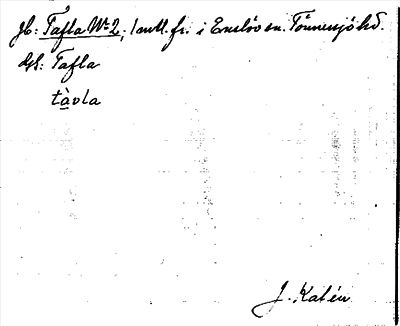 Jb: Tafla No 2, 1 mtl. fr. i Enslöv sn. Tönnersjö hd.
Gk: Tafla
tàvla
J. Kalén